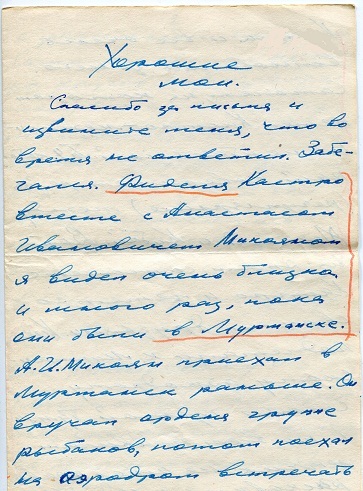 Хорошие
мои.
Спасибо за письма и
извините меня, что во
время не ответил. Забе-
гался. Фиделя Кастро
вместе с Анастасом
Ивановичем Микояном
я видел очень близко
и много раз, пока
они были в Мурманске.
А.И. Микоян приехал в
Мурманск раньше. Он
вручал ордена группе
рыбаков, потом поехал
на аэродром встречать